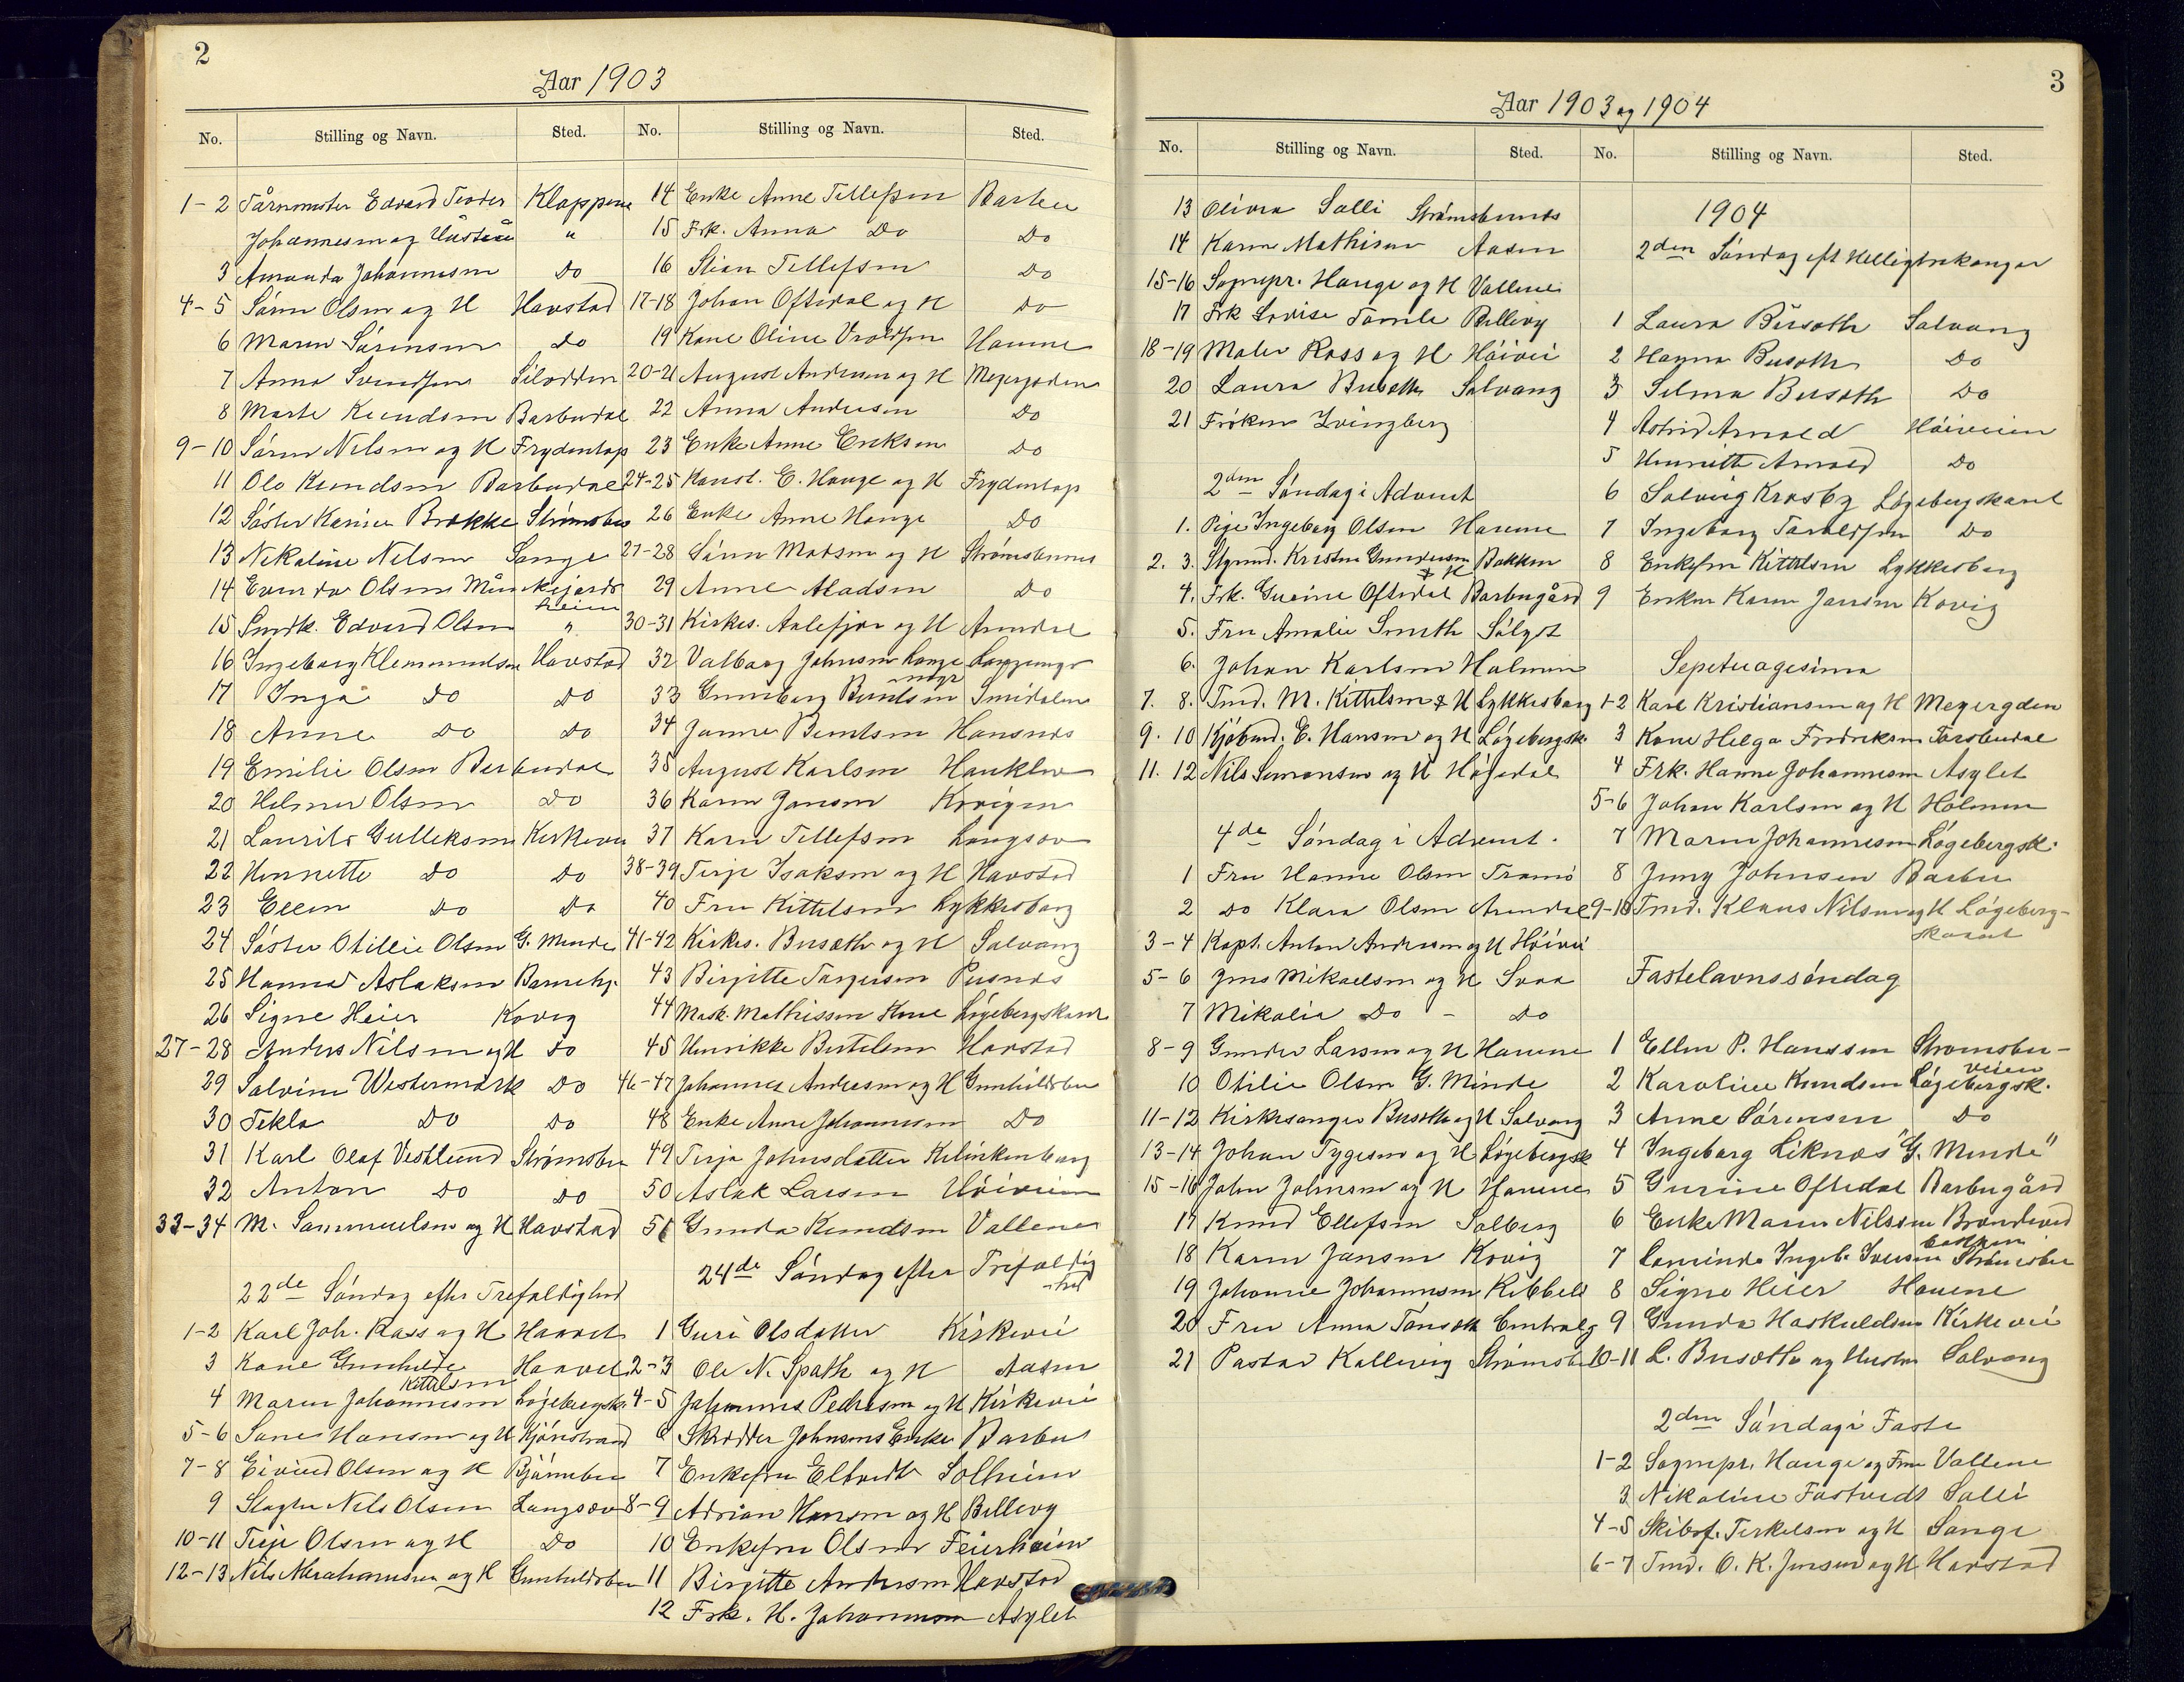 2
Aar 1903
No. Stilling og Navn. Sted.
1-2 Edvard Teodor Klappene
Johannesen og Hustru "
3 Amanda Johannesen Do
4-5 Søren Olsen og H Havstad
6 Maren Sørensen Do
7 Anna Svendsen Silodden
8 Marte Knudsen Barbudal
9-10 Søren Nilsen og H Frydenlop
11 Ole Knudsen Barbudal
12 Søster Karine Brække Strømsbu
13 Nikoline Nilsen Songe
14 Olsen
heim
15 Smdk. Edvard Olsen "
16 Ingeborg Klemmundsen Havstad
17 Inga Do Do
18 Anne Do Do
19 Emilie Olsen Barbudal
20 Helmer Olsen Do
21 Laurits Gulleksen Kirkevei
22 Henriette Do Do
23 Ellen Do Do
24 Søster Otillie Olsen G. Minde
25 Hanna Aslaksen Barnehj.
26 Signe Heier Kovig
27-28 Anders Nilsen og H Do
29 Salvine Westermark Do
30 Tekla Do Do
31 Karl Olaf Vestlund Strømsbu
32 Anton Do Do
33-34 M. Sammuelsen og H Havstad
22de Søndag efter Trefoldighed
1-2 Karl Joh. Rass og H Haavet
3 Kone Gunhilde Haavet
Kittilsen
4 Maren Johannesen Løgebergsk.
5-6 Hansen og H Kjønstrand
7-8 Eivind Olsen og H Bjørnebu
9 Slagter Nils Olsen Langsæv
10-11 Terje Olsen og H Do
12-13 Nils Abrahamsen og H Gunhildsbu
No. Stilling og Navn. Sted.
14 Enke Anne Tellefsen Barbu
15 Frk. Anna Do Do
16 Stian Tellefsen Do
17-18 Johan Oftedal og H Do
19 Kone Oline Havene
20-21 August Andersen og H Meyergaden
22 Anna Andersen Do
23 Enke Anne Eriksen Do
24-25 Konst. E. Hauge og H Frydenlop
26 Enke Anne Hauge Do
27-28 Sønn Madsen og H Strømsbunes
29 Anne Madsen Do
30-31 Kirkes. Aalefjær og H Arendal
32 Valborg Johnsen
33 Gunneborg Berntsen Smidalen
34 Janna Berntsen Hansnes
35 August Karlsen
36 Karen Jansen Kovigen
37 Karen Tellefsen Langsæv
38-39 Terje Isaksen og H Havstad
40 Fru Kittelsen Lykkesborg
41-42 Kirkes. Busæth og H Solvang
43 Birgitte Torgersen Pusnes
44 Mask. Mathissen Kone Løgebergskaret
45 Henrikke Bertelsen Havstad
46-47 Johannes Andersen og H Gunhildsbu
48 Enke Anne Johannesen Do
49 Terje Johnsdatter Klinkenberg
50 Aslak Larsen Høiveien
51 Gunda Knudsen Vallene
24de Søndag efter Trefoldig
-hed
1 Guri Olsdatter Kirkevei
2-3 Ole N. Spæth og H Aasen
4-5 Johannes Pedersen og H Kirkevei
6 Skrædder Johnsens Enke Barbu
7 Enkefru Eltvedt Solheim
8-9 Adrian Hansen og H Bellevy
10 Enkefru Olsen Feierheien
11 Birgitte Andersen Havstad
12 Frk. H. Johannesen Asylet
3
Aar 1903 og 1904
No. Stilling og Navn. Sted.
13 Olivia Salli Strømsbunes
14 Karen Mathisen Aasen
15-16 Sognepr. Hauge og H Vallene
17 Frk Lovise Tomle Bellevy
18-19 Maler Rass og H Høivei
20 Laura Busæth Solvang
21 Frøken Zvingberg
2den Søndag i Advent
1. Pige Ingeborg Olsen Havene
2. 3. Styrmd. Kristen Gundersen Bakken
& H
4. Frk. Gurine Oftedal Barbugård
5. Fru Amalie Smith Sølyst
6. Johan Karlsen Holmen
7. 8. Tmd. M. Kittelsen & H Lykkesborg
9. 10 Kjøbmd. E. Hansen og H Løgebergsk.
11. 12 Nils Simonsen og H Høgedal
4de Søndag i Advent.
1 Fru Hanne Olsen Tromø
2 Do Klara Olsen Arendal
3-4 Kapt. Anton Andersen og H Høivei
5-6 Jens Mikaelsen og H Svaa
7 Mikalia Do - Do
8-9 Gunder Larsen og H Havene
10 Otilie Olsen G. Minde
11-12 Kirkesanger Busæth og H Solvang
13-14 Johan Tygesen og H Løgebergsk
15-16 John Johnsen og H Havene
17 Knud Ellefsen Solberg
18 Karen Jansen Kovig
19 Johanne Johannesen Kibbeli
20 Fru Anna Tønseth Centralg
21 Pastor Kallevig Strømsbu
No. Stilling og Navn. Sted.
1904
2den Søndag eft Helligtrekonger
1 Laura Busæth Solvang
2 Hanna Busæth Do
3 Selma Busæth Do
4 Astrid Arnold Høiveien
5 Henriette Arnold Do
6 Solveig Krosby Løgebergskaret
7 Ingeborg Taraldsen Do
8 Enkefru Kittelsen Lykkesborg
9 Enken Karen Jansen Kovig
Sepetuagesima
1-2 Karl Kristiansen og H Meyergden
3 Kone Helga Fredriksen Torsbudal
4 Frk. Hanne Johannesen Asylet
5-6 Johan Karlsen og H Holmen
7 Maren Johannesen Løgebergsk.
8 Jenny Johnsen Barbu
9-10 Tmd. Klaus Nilsen og H Løgeberg-
skaret
Fastelavnssøndag
1 Ellen P. Hanssen Strømsbu-
veien
2 Karoline Knudsen Løgebergsk.
3 Anne Sørensen Do
4 Ingeborg Liknæs "G. Minde"
5 Gurine Oftedal Barbugård
6 Enke Maren Nilssen Brændeved
bakken
7 Laminda Ingeb. Iversen Strømsbu
8 Signe Heier Havene
9 Gunda Haskuldsen Kirkevei
10-11 L. Busæth og Hustru Solvang
2den Søndag i Faste
1-2 Sognepr. Hauge og Fru Vallene
3 Nikoline Fastvedt Salli
4-5 Skibsf. Terkelsen og H Songe
6-7 Tmd. O. K. Jensen og H Havstad